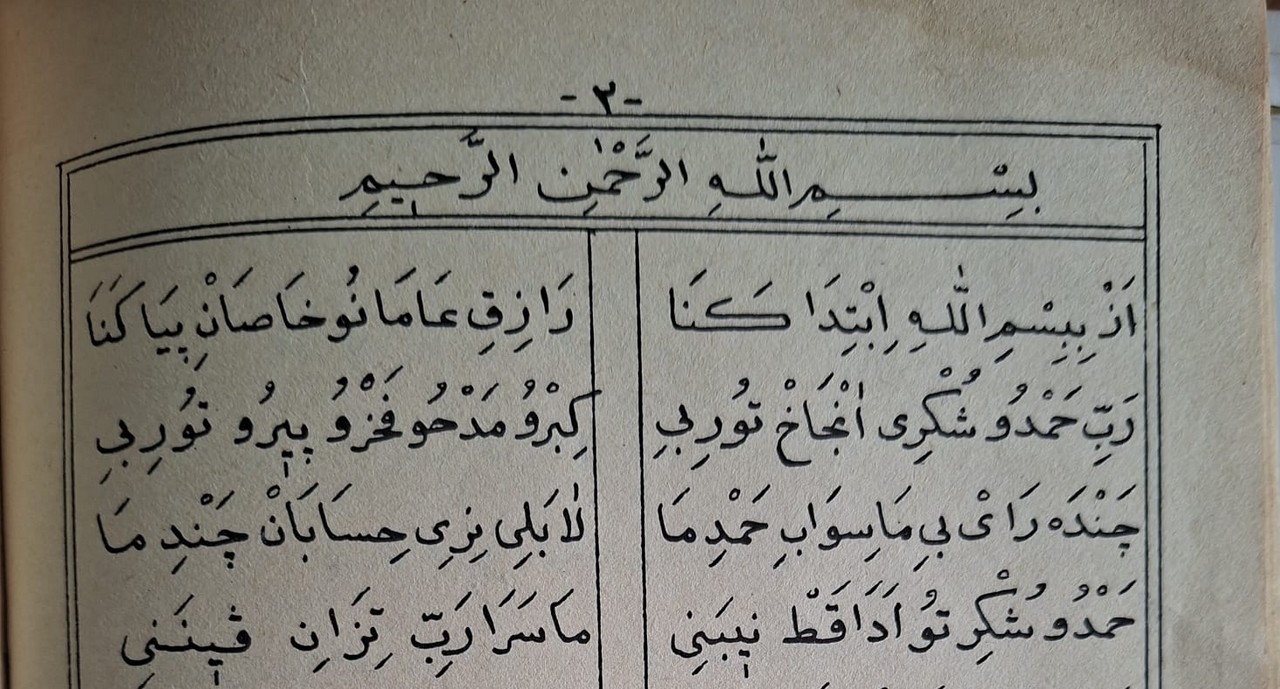 -٣-
بِسْمِ اللّٰهِ الرَّحْمٰنِ الرَّحِيمِ
اَزْ بِبِسْمِ اللّٰهِ اِبْتِدَا كَنَا رَازِقِ عَامَانُو خَاصَانِ پِيَا كَنَا
رَبِّ حَمْدُو شُكْرِى اَنْجَاخْ تُورِبِي كِبْرُو مَدْحُو فَخْرُو پِيرُو تُورِبِي
چَنْدَه رَاىْ بِي مَاسِوَابِ حَمْدِ مَا لَابَلِى نِزِى حِسَابَانْ چَنْدِ مَا
حَمْدُو شُكْرِ تُو اَدَا قَطْ نِيبَنِي مَاسَرَا رَبِّ تِزَانِ ڤِينَنِي